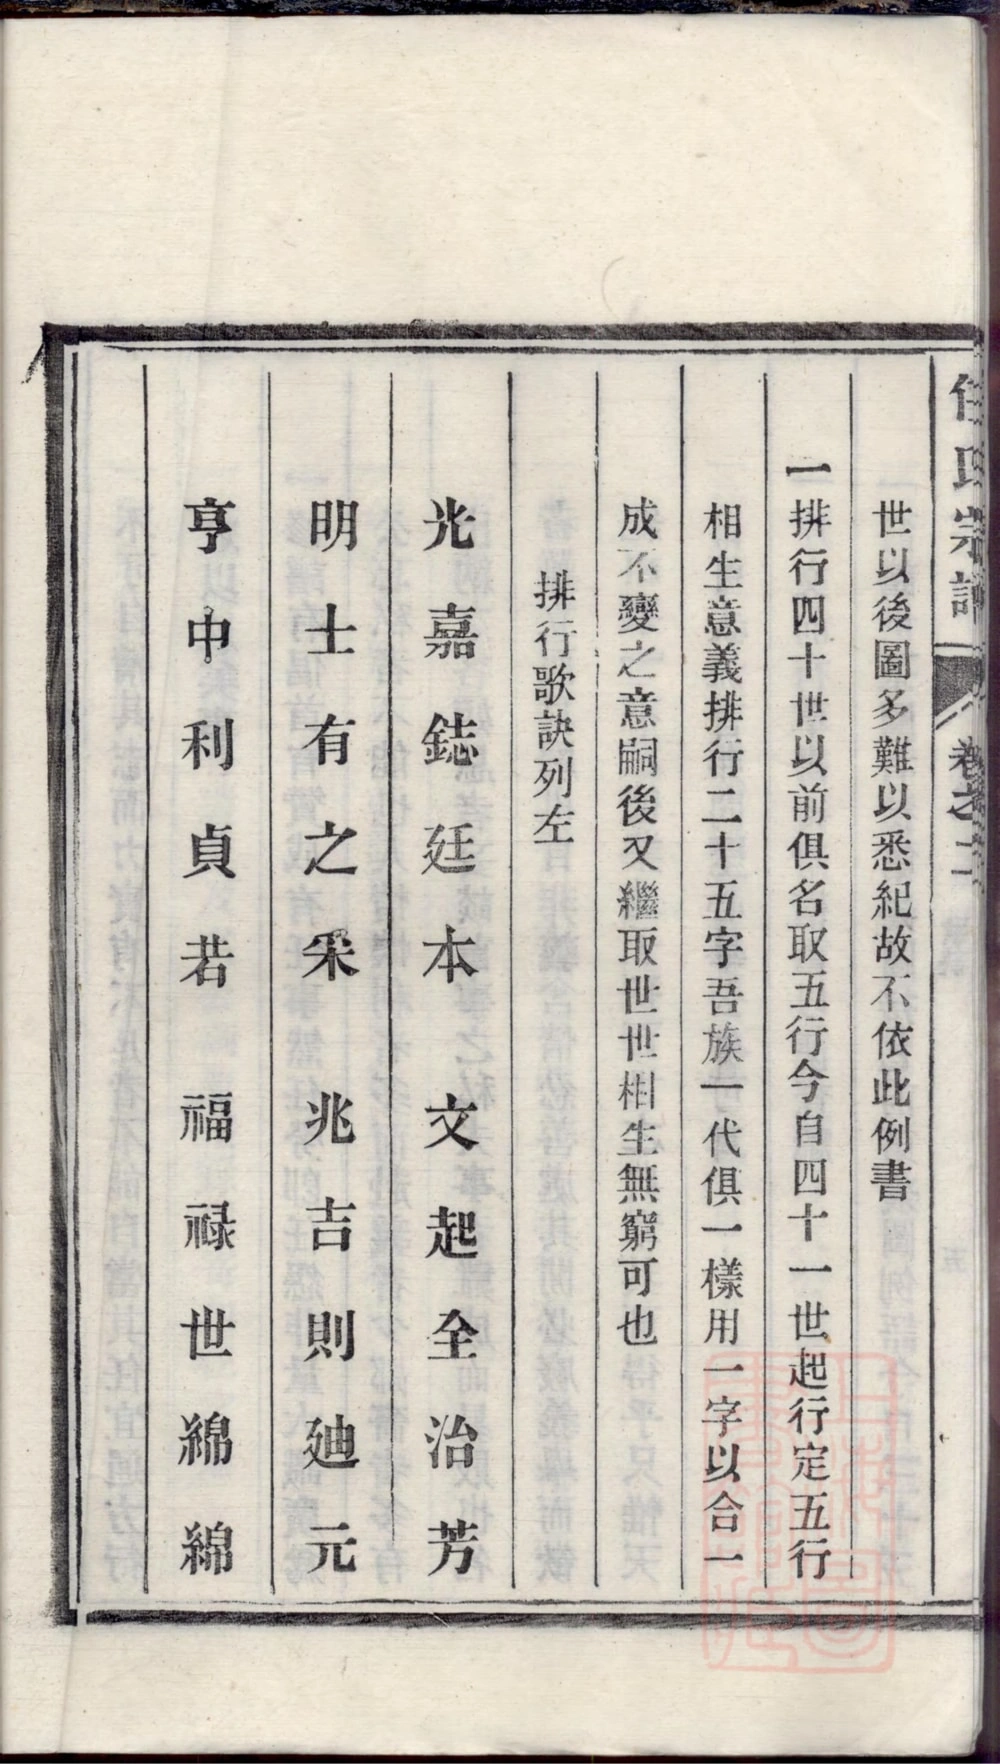 任氏宗譜 卷之二
世以後圖多難以悉紀故不依此例書
一排行四十世以前俱名取五行今自四十一世起行定五行
相生意義排行二十五字吾族一代俱一樣用一字以合一
成不變之意嗣後又繼取世世相生無窮可也
排行歌訣列左
光嘉鋕廷本文起全治芳
明士有之釆兆吉則廸元
亨中利貞若福禄世綿綿